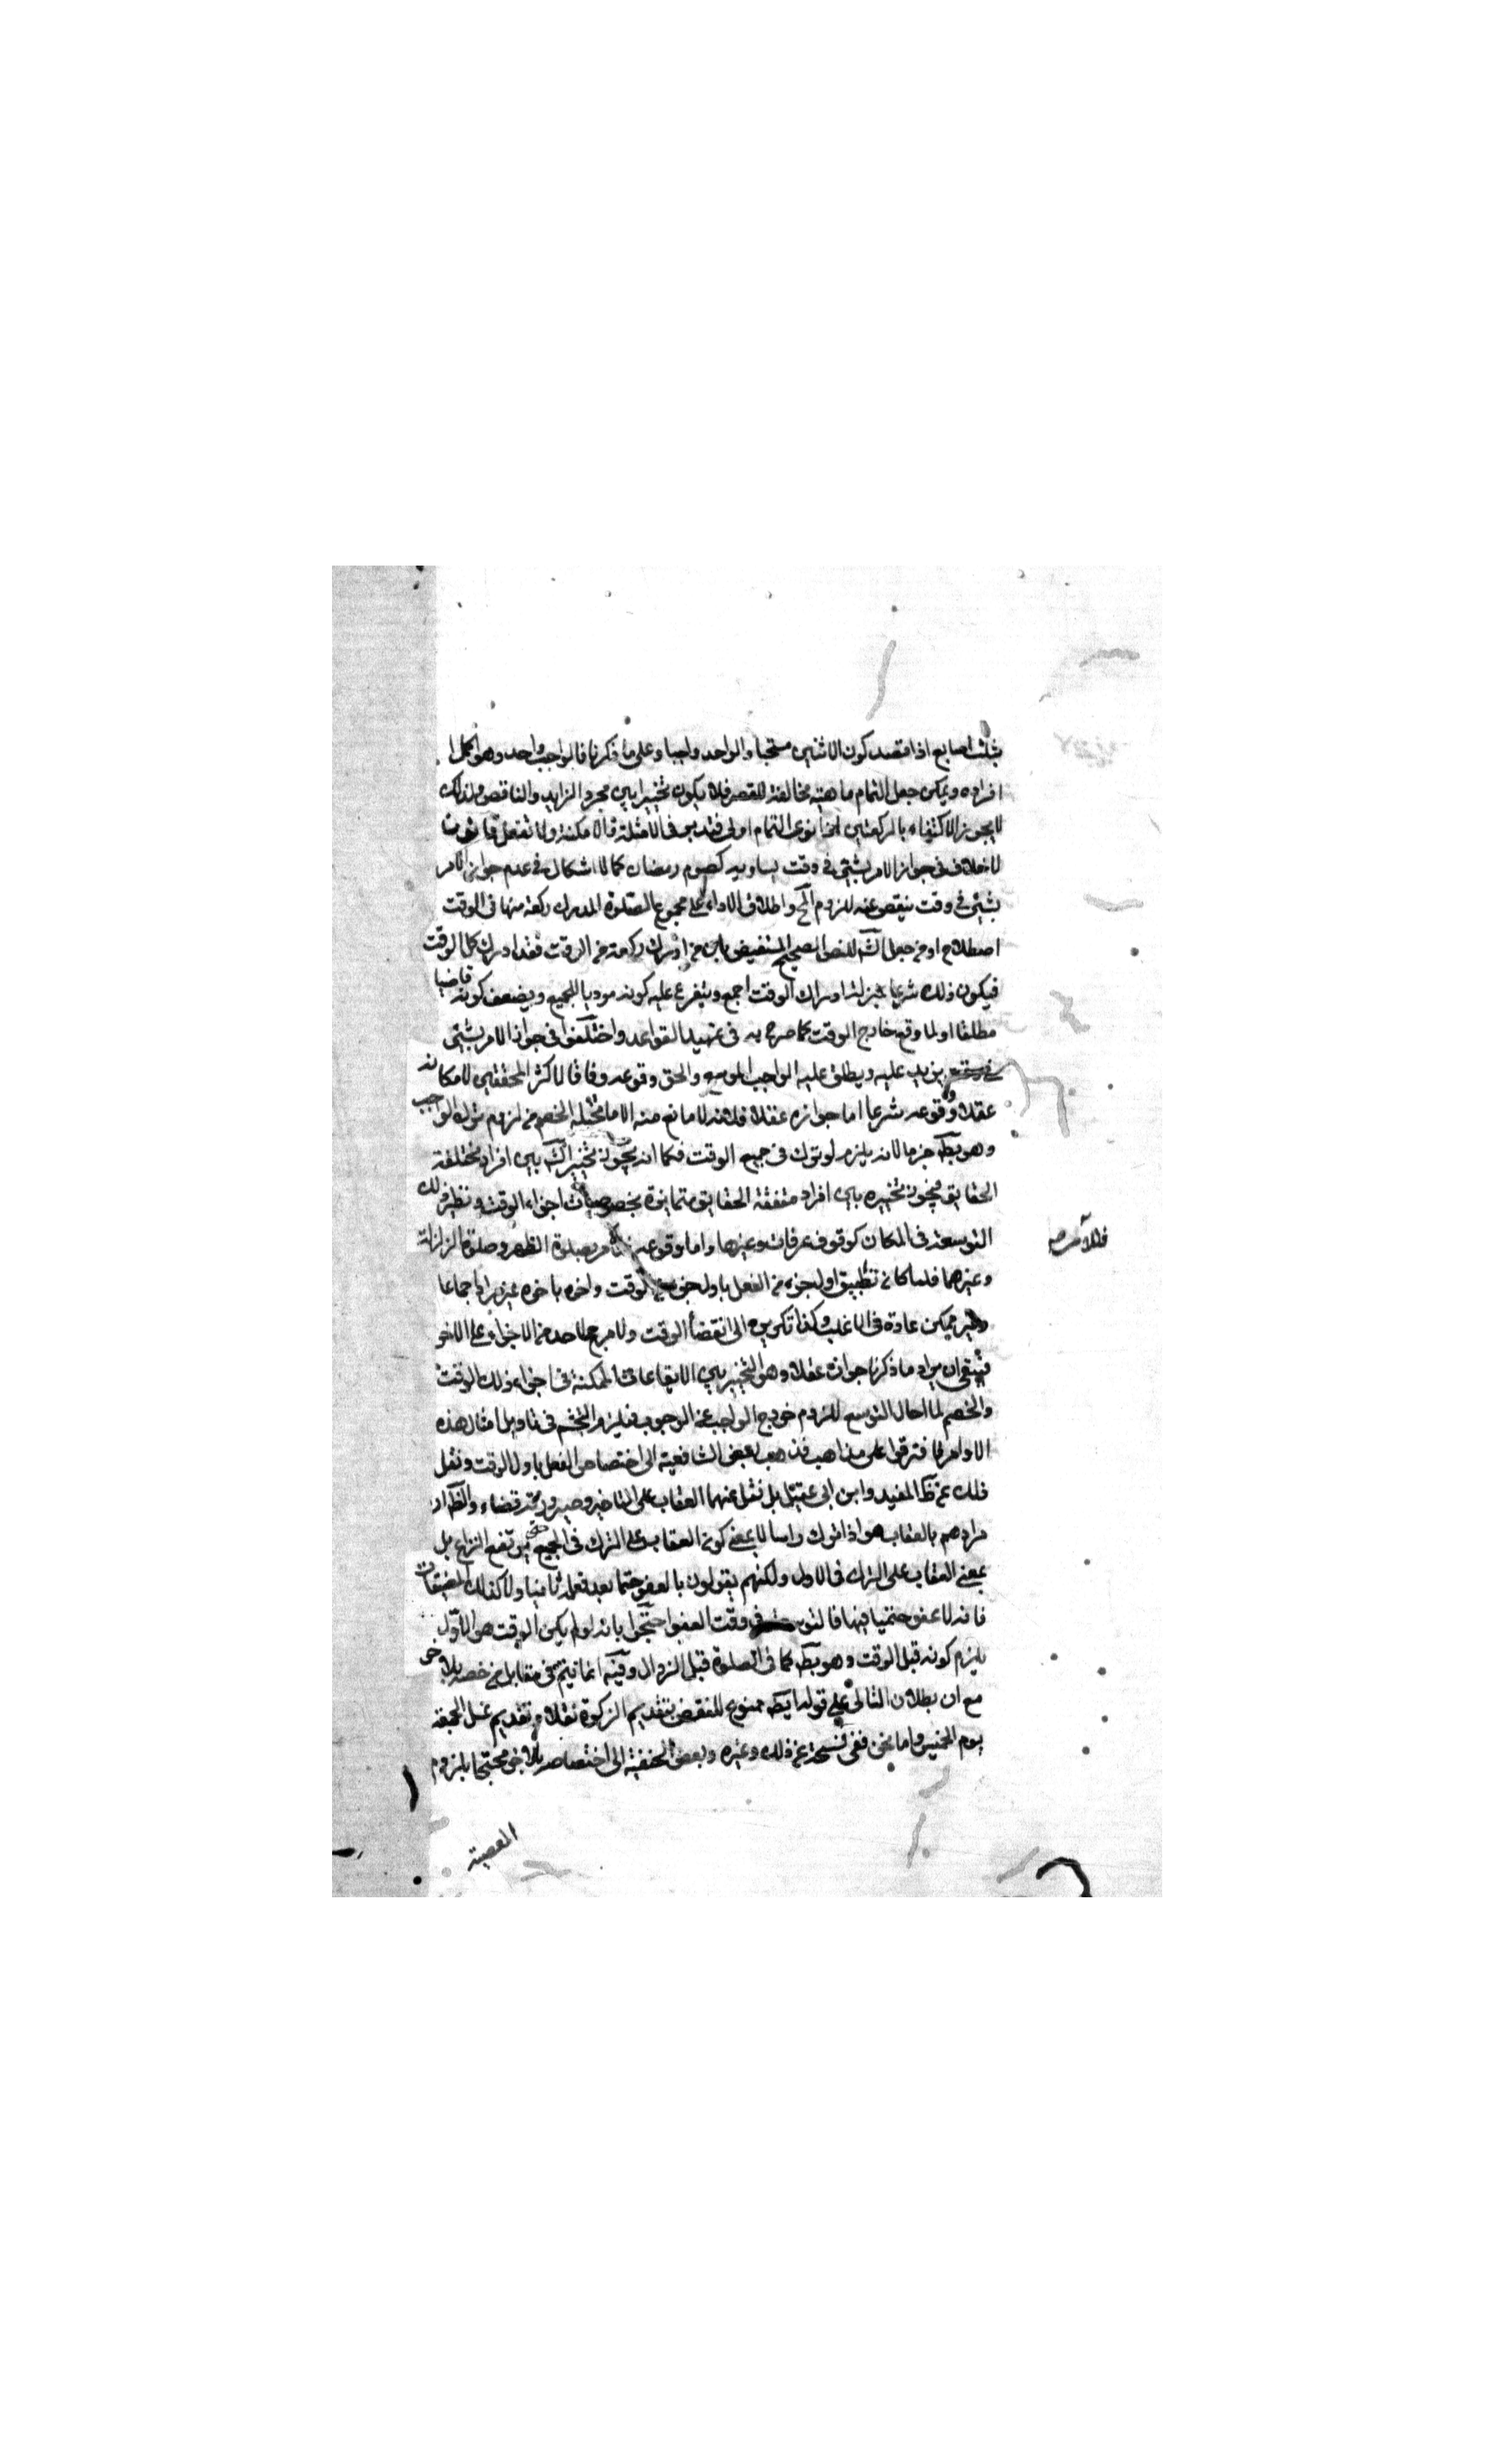 بثلث اصابع اذا قصد كون الاثنين مستحبا والواحد واجبا وعلى ما ذكرنا فالواجب واحد وهو اكمل
افراده ويمكن جعل التمام ماهية مخالفة للقصر فلا يكون تخييرا بين مجرد الزايد والناقص ولذلك
لا يجوز الاكتفاء بالركعتين لمن نوى التمام اولى فتدبر في الامثلة والامكنة ولا تغفل قانون
لا خلاف في جواز الامر بشئ في وقت يساويه كصوم رمضان كما لا اشكال في عدم جواز الامر
بشئ في وقت ينقص عنه للزوم المح واطلاق الاداء على مجموع الصلوة المدرك ركعة منها في الوقت
اصطلاح او من جعل الش للنص الصحيح المستفيض بان من ادرك ركعة من الوقت فقد ادرك كل الوقت
فيكون ذلك شرعا بمنزلة ادراك الوقت اجمع ويتفرع عليه كونه موديا للجميع ويضعف كونه قاضيا
مطلقا او لما وقع خارج الوقت كما صرح به في تمهيد القواعد واختلفوا في جواز الامر بشئ
في وقت يزيد عليه ويطلق عليه الواجب الموسع والحق وقوعه وفاقا لاكثر المحققين لامكانه
عقلا ووقوعه شرعا اما جوازه عقلا فلانه لا مانع منه الا ما تخيله الخصم من لزوم ترك الواجب
وهو بط جزما لانه يلزم لو ترك في جميع الوقت فكما انه يجوز تخيير الش بين افراد مختلفة
الحقايق فيجوز تخييره بين افراد متفقة الحقايق متمايزة بخصوصيات اجزاء الوقت ونظير ذلك
التوسعة في المكان كوقوف عرفات وغيرها واما وقوعه بصلوة الظهر وصلوة الزلزلة
فللامر
وغيرهما فلما كان تطبيق اول جزء من الفعل باول جزء من الوقت واخره باخره غير مراد اجماعا
وغير ممكن عادة في الاغلب وكذا تكريره الى انقضاء الوقت ولا مرجح لاحد من الاجزاء على الاخر
فينبغي ان يراد ما ذكرنا جوازه عقلا وهو التخيير بين الايقاعات الممكنة في اجزاء ذلك الوقت
والخصم لما احال التوسع للزوم خروج الواجب عن الوجوب فيلزم التجشم في تاويل امثال هذه
الاوامر فافترقوا على مذاهب فذهب بعض الشافعية الى اختصاص الفعل باول الوقت ونقل
ذلك عن ظ المفيد وابن ابي عقيل بل نقل عنهما العقاب على التاخير وصيرورته قضاء والظ ان
مرادهم بالعقاب هو اذا ترك راسا لا بمعنى كون العقاب على الترك في الجميع حتى يرتفع النزاع بل
بمعنى العقاب على الترك في الاول ولكنهم يقولون بالعفو حتما بعد فعله ثانيا ولا كذلك المضيقات
فانه لا عفو حتميا فيها فالتوسعة في وقت العفو احتجوا بانه لو لم يكن الوقت هو الاول
يلزم كونه قبل الوقت وهو بط كما في الصلوة قبل الزوال وفيه انه انما يتم في مقابل من خصه بالاخر
مع ان بطلان التالي على قوله ايضا ممنوع للنقض بتقديم الزكوة نقلا وتقديم غسل الجمعة
يوم الخميس واما نحن ففي فسحة عن ذلك وغيره وبعض الحنفية الى اختصاصه بالاخر محتجا بلزوم
المعصية